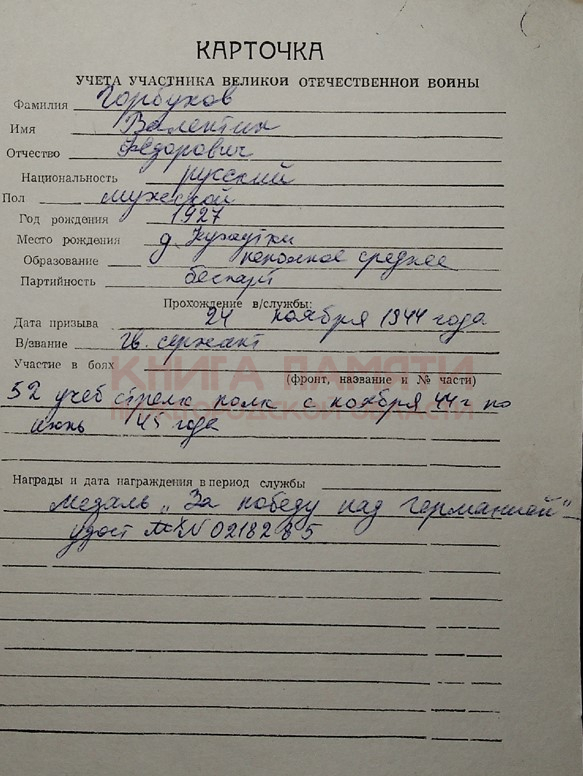 КАРТОЧКА
УЧЕТА УЧАСТНИКА ВЕЛИКОЙ ОТЕЧЕСТВЕННОЙ ВОЙНЫ
Фамилия Горбунов
Имя Валентин
Отчество Федорович
Национальность русский
Пол мужской
Год рождения 1927
Место рождения д.
Образование неполное среднее
Партийность беспарт
Прохождение в/службы:
Дата призыва 24 ноября 1944 года
В/звание гв. сержант
Участие в боях
КНИГА ПАМЯТИ
(фронт, название и № части)
НИЖЕГОРОДСКОЙ ОБЛАСТИ
52 учеб стрелк полк с ноября 44 г по
июнь 45 года
Награды и дата награждения в период службы
медаль „За победу над Германией"
удост